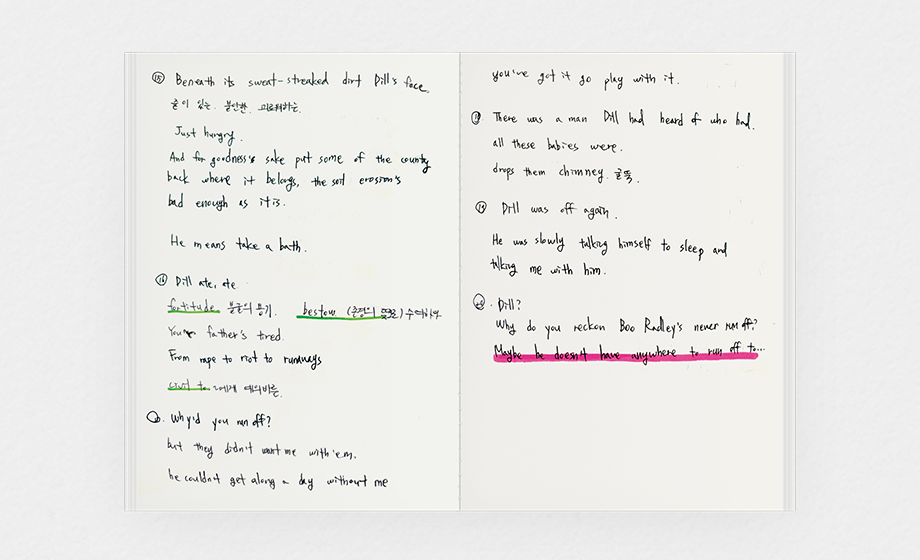 ⑮ Beneath its sweat-streaked dirt Dill's face.
불안한. 괴로워하는.
Just hungry.
And for goodness's sake put some of the county
back where it belongs, the soil erosion's
bad enough as it is.
He means take a bath.
⑯ Dill ate, ate.
fortitude 불굴의 용기. bestow (존경의 뜻으로) 수여하다
Your father's tired.
From rape to riot to runaways
civil to ~에게 예의바른.
Why'd you run off?
but they didn't want me with 'em.
he couldn't get along a day without me
you've got it go play with it.
There was a man Dill had heard of who had.
all these babies were.
drops them chimney. 굴뚝.
⑲ Dill was off again.
He was slowly talking himself to sleep and
talking me with him.
Dill?
Why do you reckon Boo Radley's never run off?
Maybe he doesn't have anywhere to run off to...